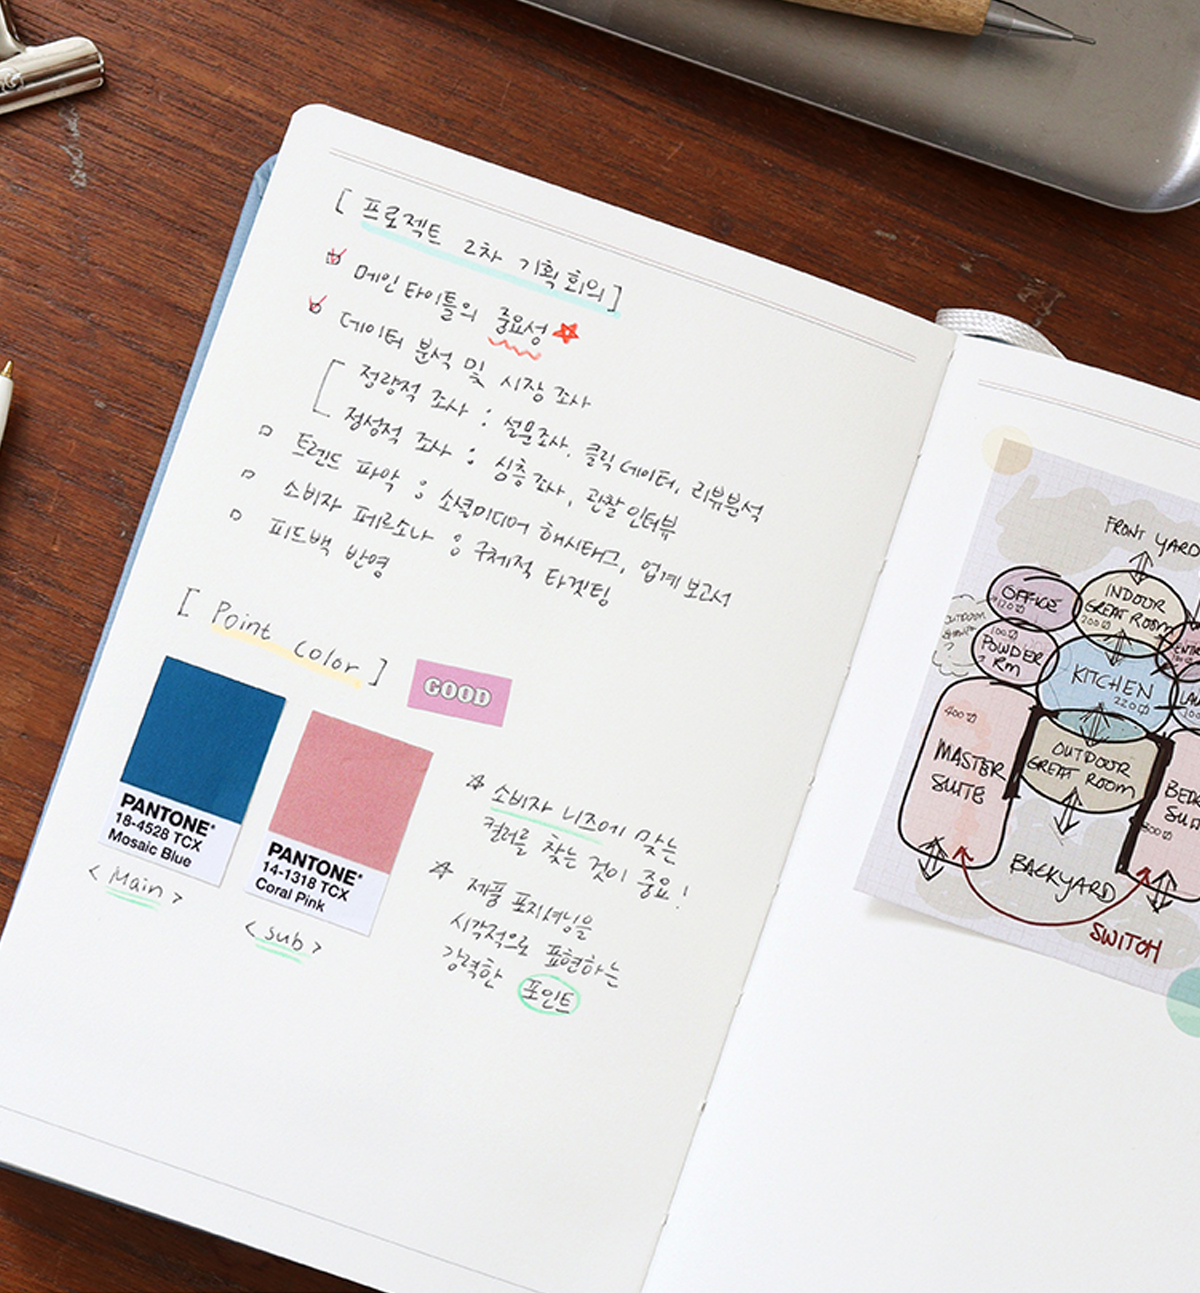 [ 프로젝트 2차 기획 회의 ]
메인 타이틀의 중요성
데이터 분석 및 시장 조사
정량적 조사 : 설문조사, 클릭 데이터, 리뷰분석
정성적 조사 : 심층조사, 관찰 인터뷰
트렌드 파악 : 소셜미디어 해시태그, 업계 보고서
소비자 페르소나 : 구체적 타겟팅
피드백 반영
[ Point Color ]
GOOD
PANTONE®
18-4528 TCX
Mosaic Blue
< Main >
PANTONE®
14-1318 TCX
Coral Pink
< sub >
소비자 니즈에 맞는
컬러를 찾는 것이 중요!
제품 포지셔닝을
시각적으로 표현하는
강력한 포인트
FRONT YARD
OFFICE
120
INDOOR
GREAT ROOM
200
OUTDOOR
100
POWDER
Rm
KITCHEN
220
400
MASTER
SUITE
OUTDOOR
GREAT ROOM
BACKYARD
SWITCH